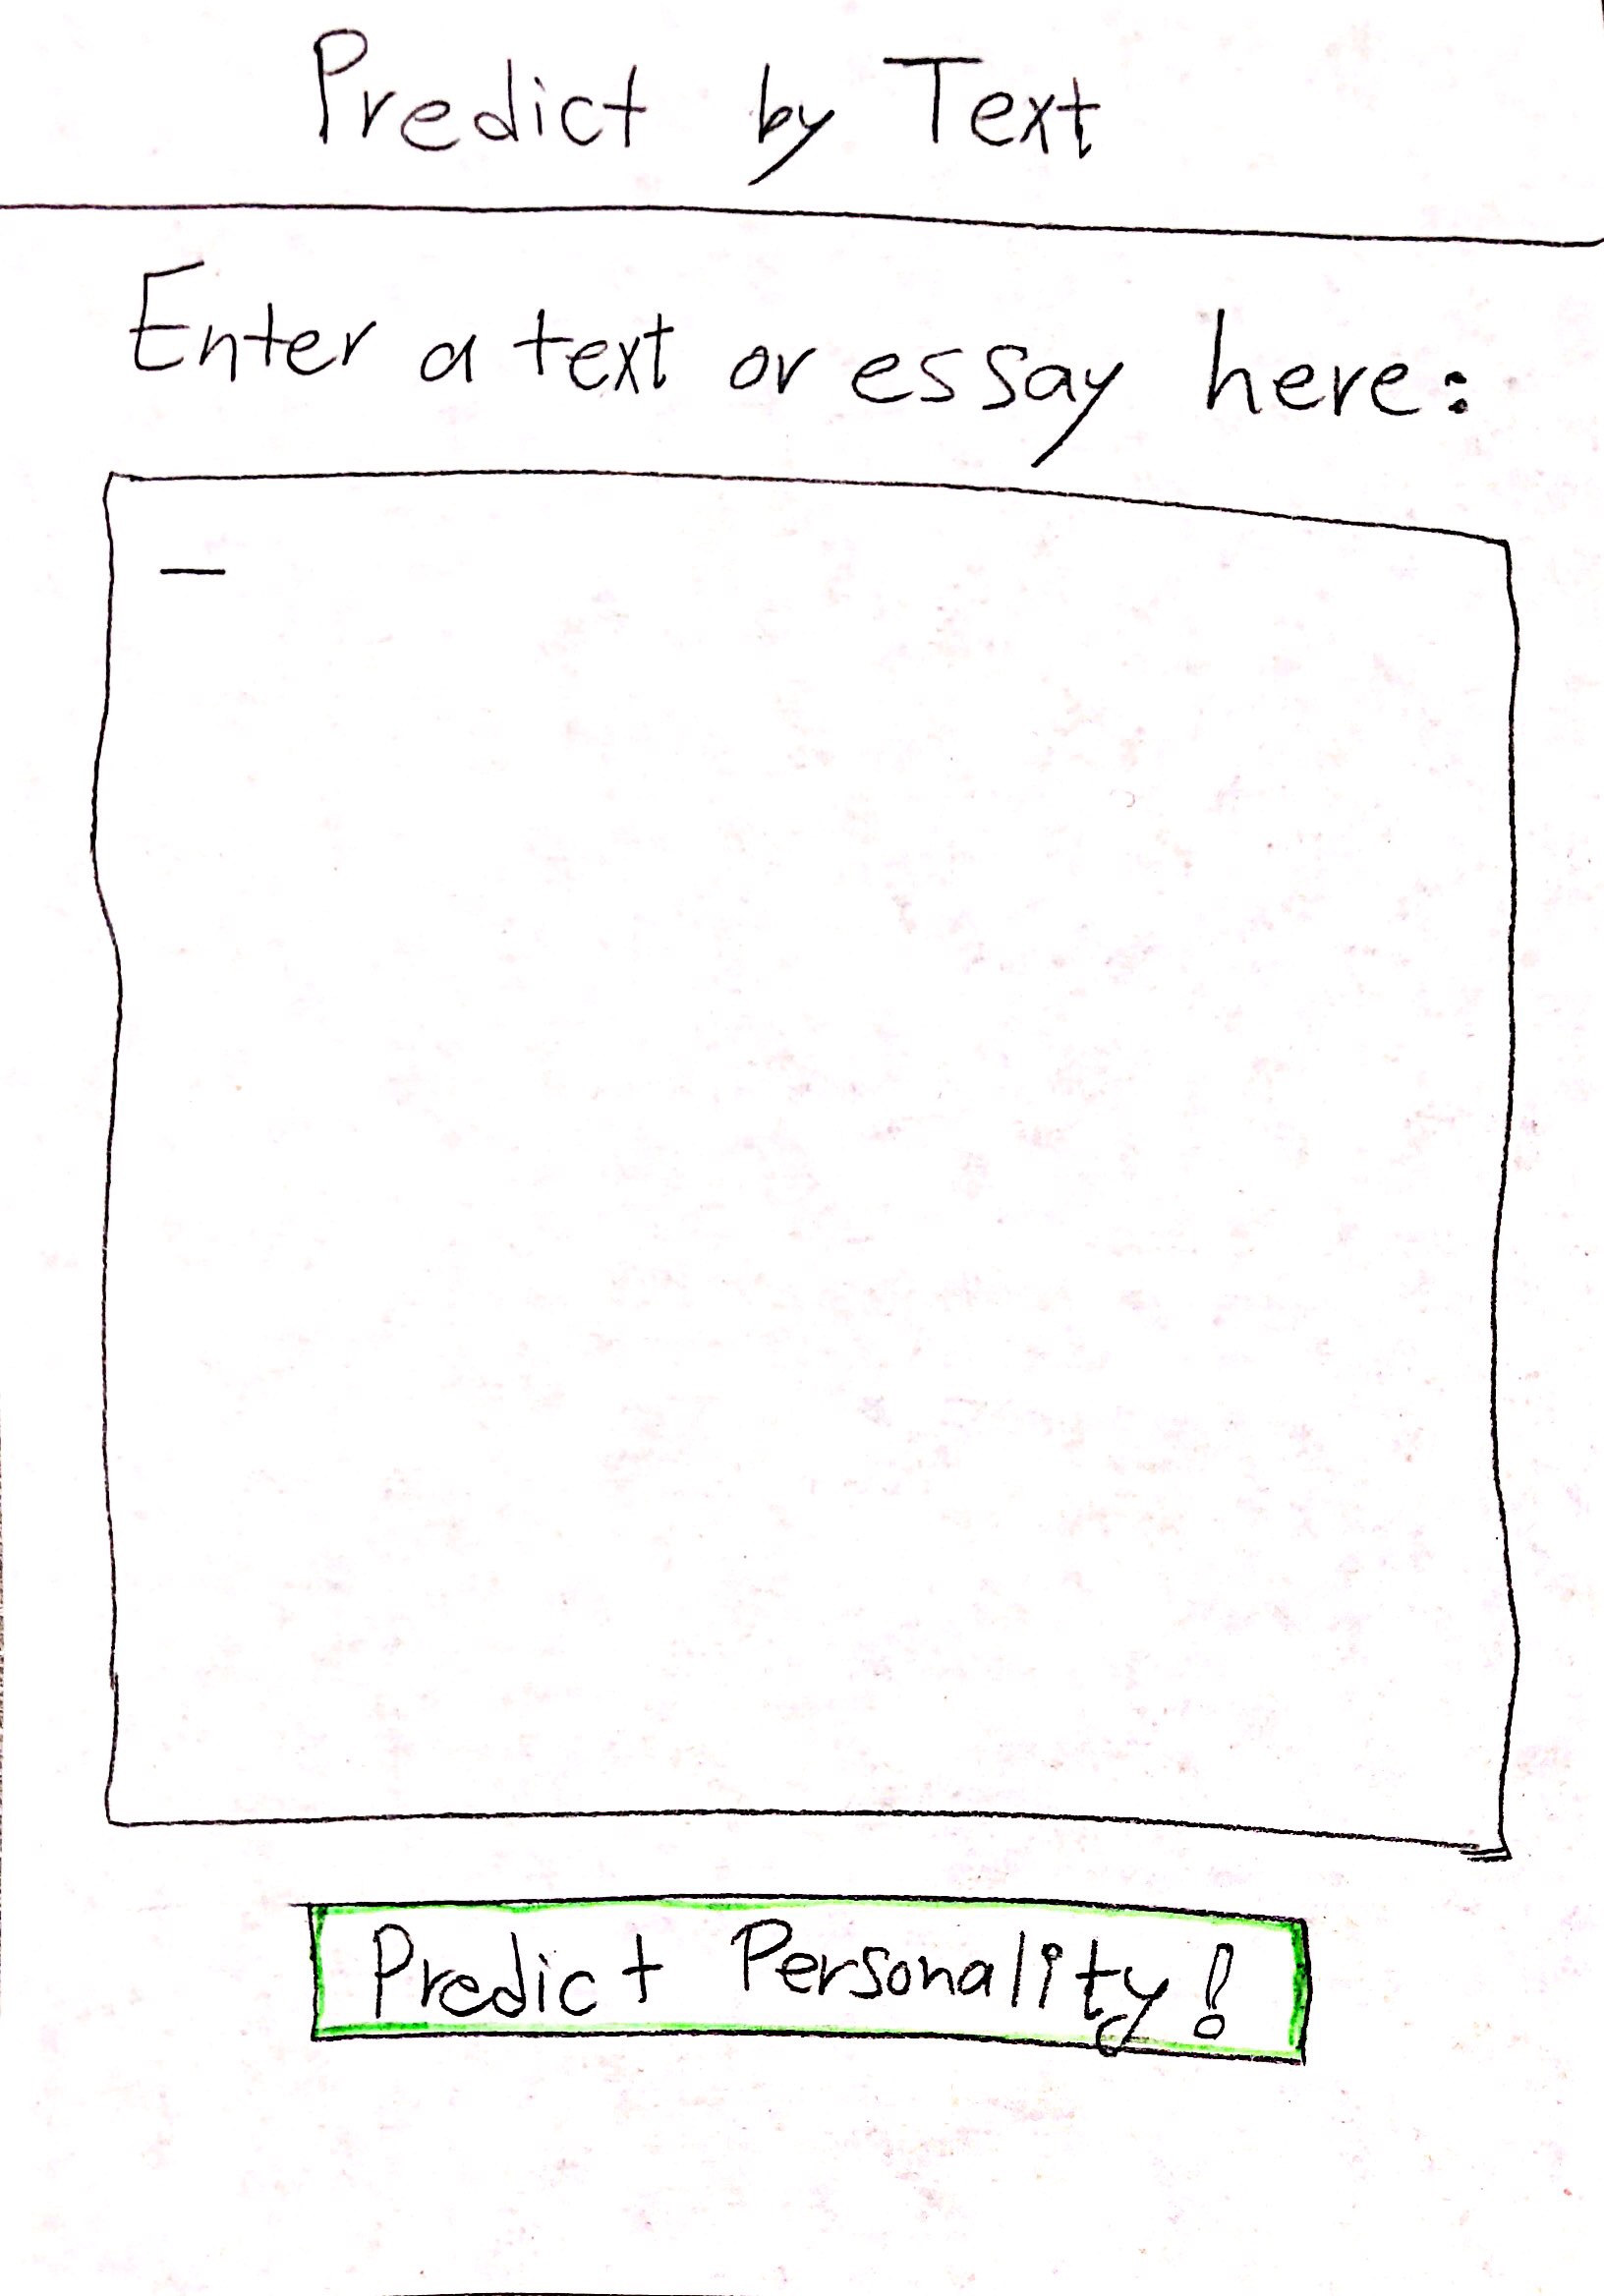 Predict by Text
Enter a text or essay here:
Predict Personality!